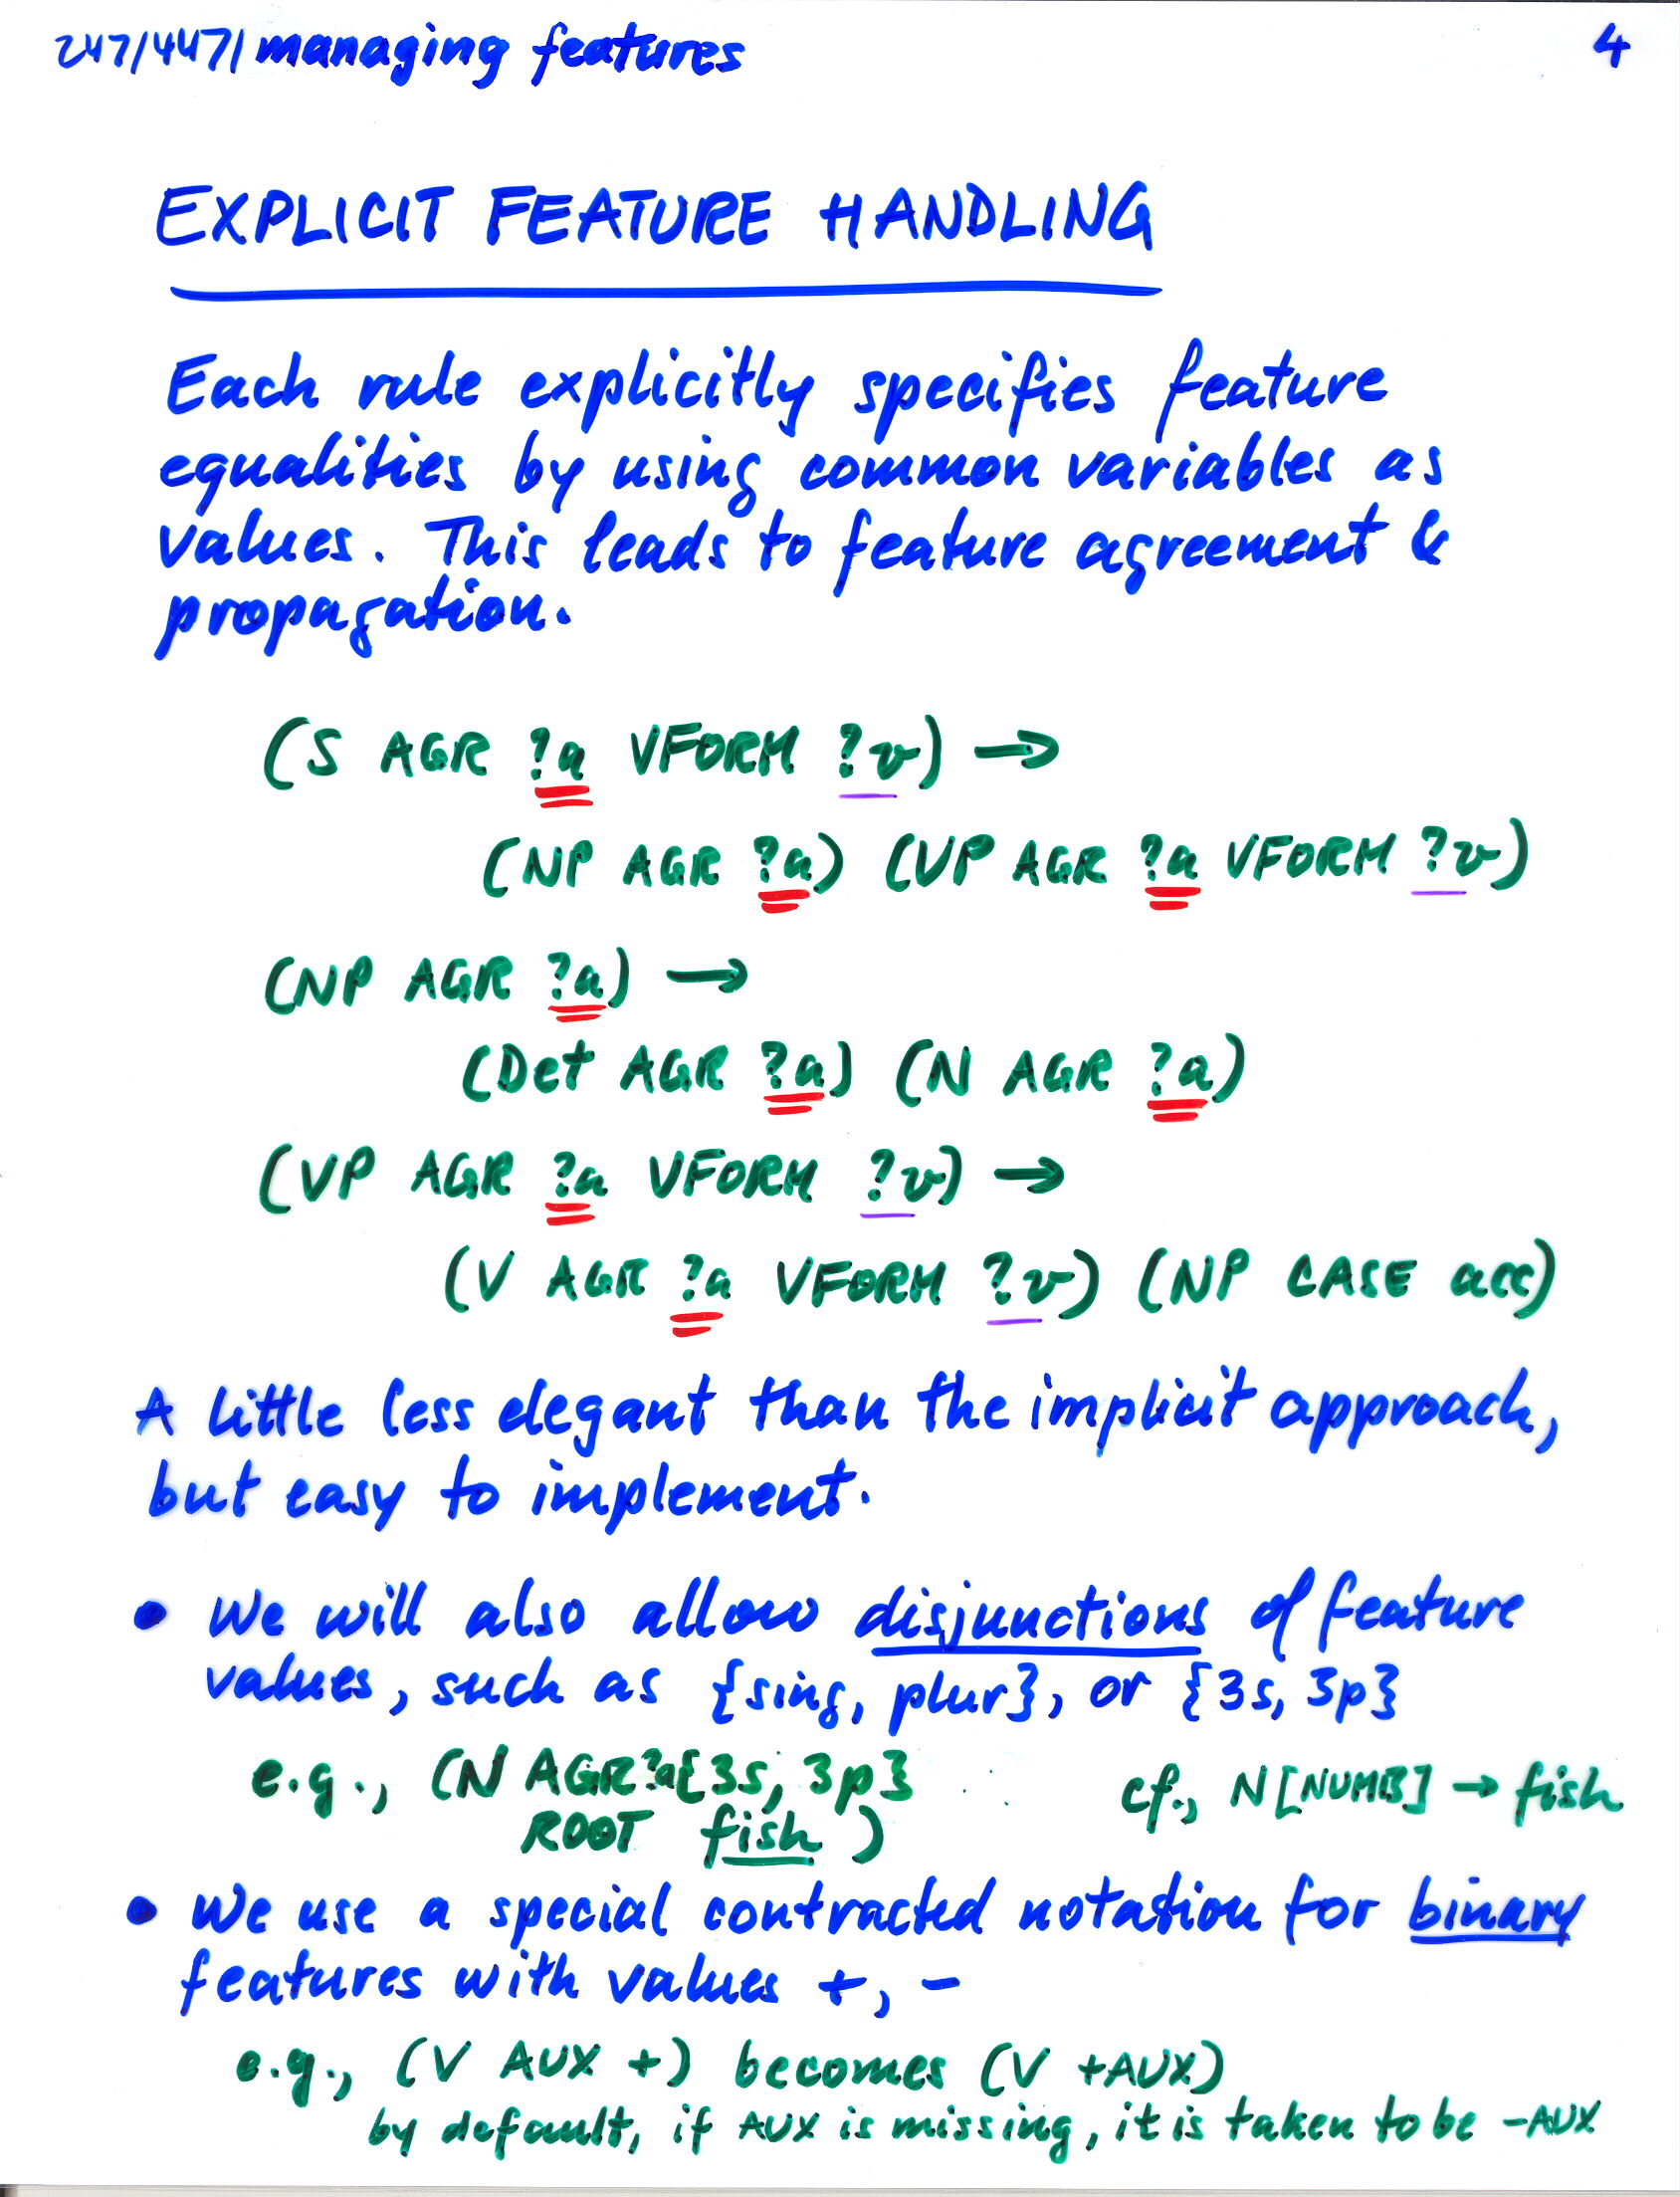 247/447/managing features 4
EXPLICIT FEATURE HANDLING
Each rule explicitly specifies feature
equalities by using common variables as
values. This leads to feature agreement &
propagation.
(S AGR ?a VFORM ?v) →
(NP AGR ?a) (VP AGR ?a VFORM ?v)
(NP AGR ?a) →
(Det AGR ?a) (N AGR ?a)
(VP AGR ?a VFORM ?v) →
(V AGR ?a VFORM ?v) (NP CASE acc)
A little less elegant than the implicit approach,
but easy to implement.
• We will also allow disjunctions of feature
values, such as {sing, plur}, or {3s, 3p}
e.g., (N AGR ?a{3s, 3p} cf., N[NUMB] → fish
ROOT fish)
• We use a special contracted notation for binary
features with values +, -
e.g., (V AUX +) becomes (V +AUX)
by default, if AUX is missing, it is taken to be -AUX